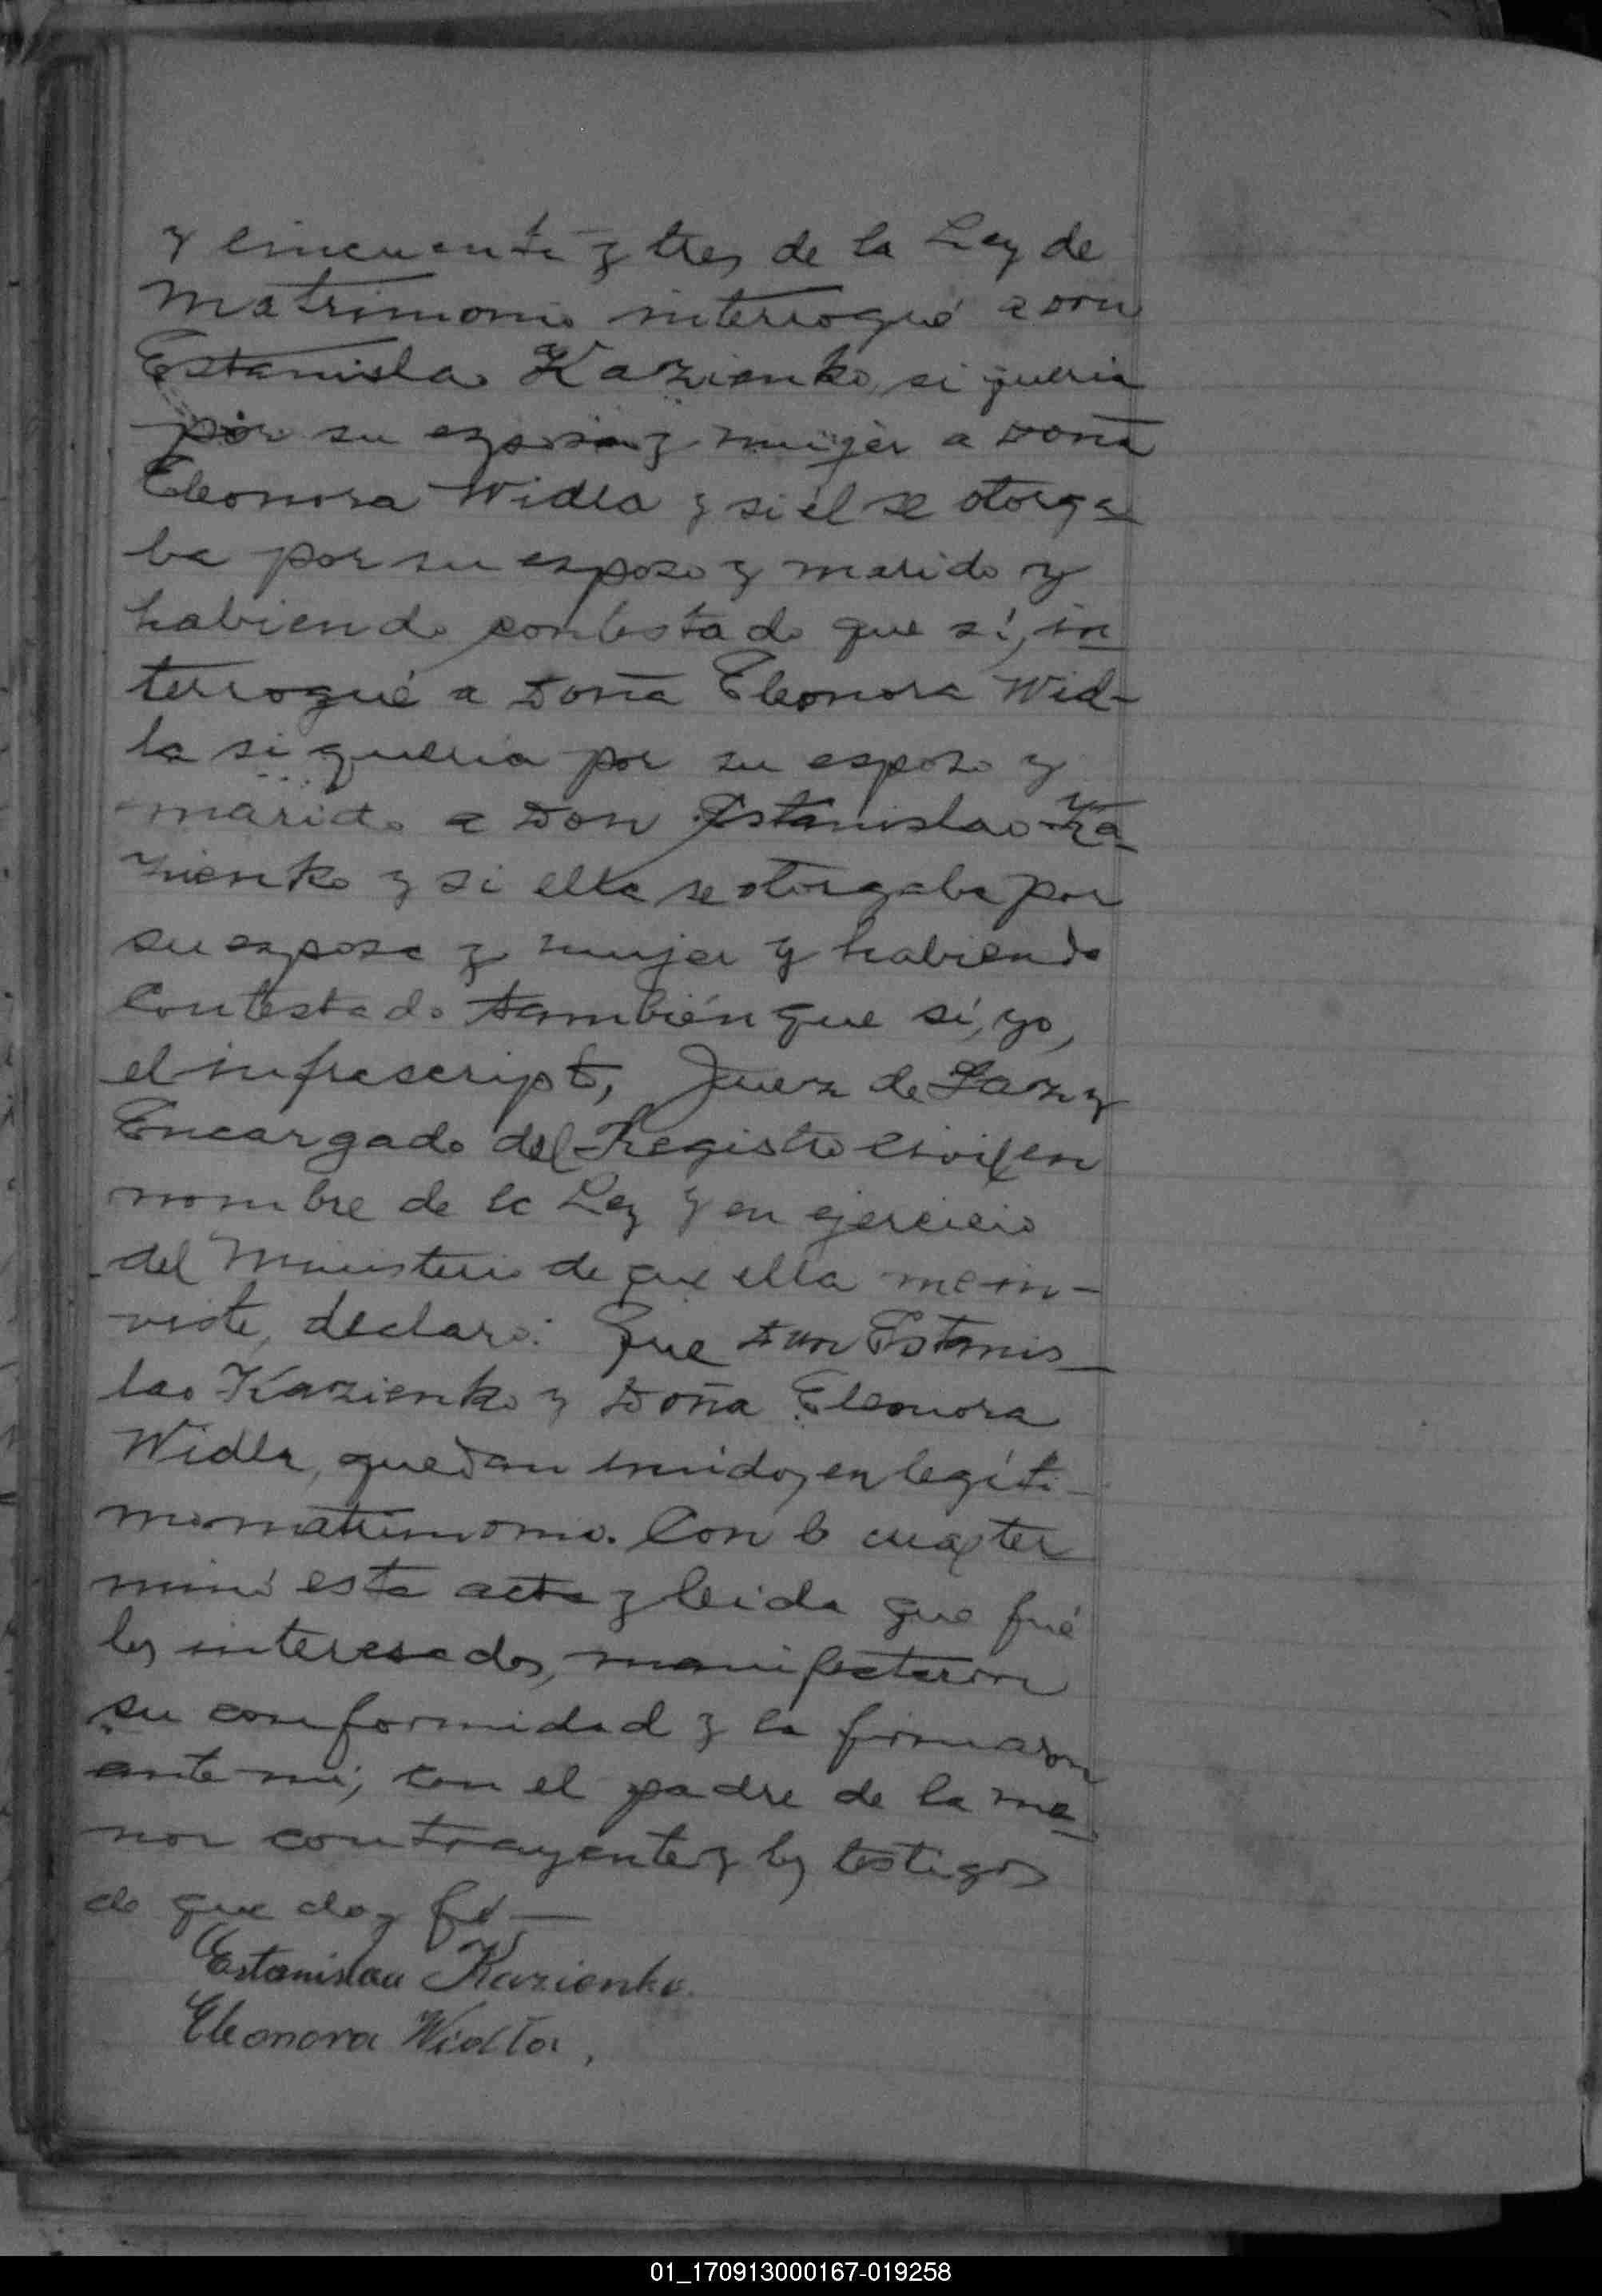 y cincuenta y tres de la Ley de
Matrimonio interrogué a don
Estanislao Kazienko, si queria
por su esposa y mujer a Doña
Eleonora Widla y si él se otorga
ba por su esposo y marido y
habiendo contestado que sí, in
terrogué a Doña Eleonora Wid-
la si queria por su esposo y
marido a Don Estanislao Ka
zienko y si ella se otorgaba por
su esposa y mujer y habiendo
contestado también que sí, yo,
el infrascripto, Juez de Paz y
Encargado del Registro Civil en
nombre de la Ley y en ejercicio
del Ministerio de que ella me in-
viste, declaro: Que Don Estanis
lao Kazienko y Doña Eleonora
Widla, quedan unidos en legíti
mo matrimonio. Con lo cual ter
minó esta acta y leida que fué
los interesados, manifestaron
su conformidad y la firmaron
ante mí, con el padre de la me
nor contrayente y los testigos
de que doy fé —
Estanislau Kazienko.
Eleonora Widla,
01_170913000167-019258